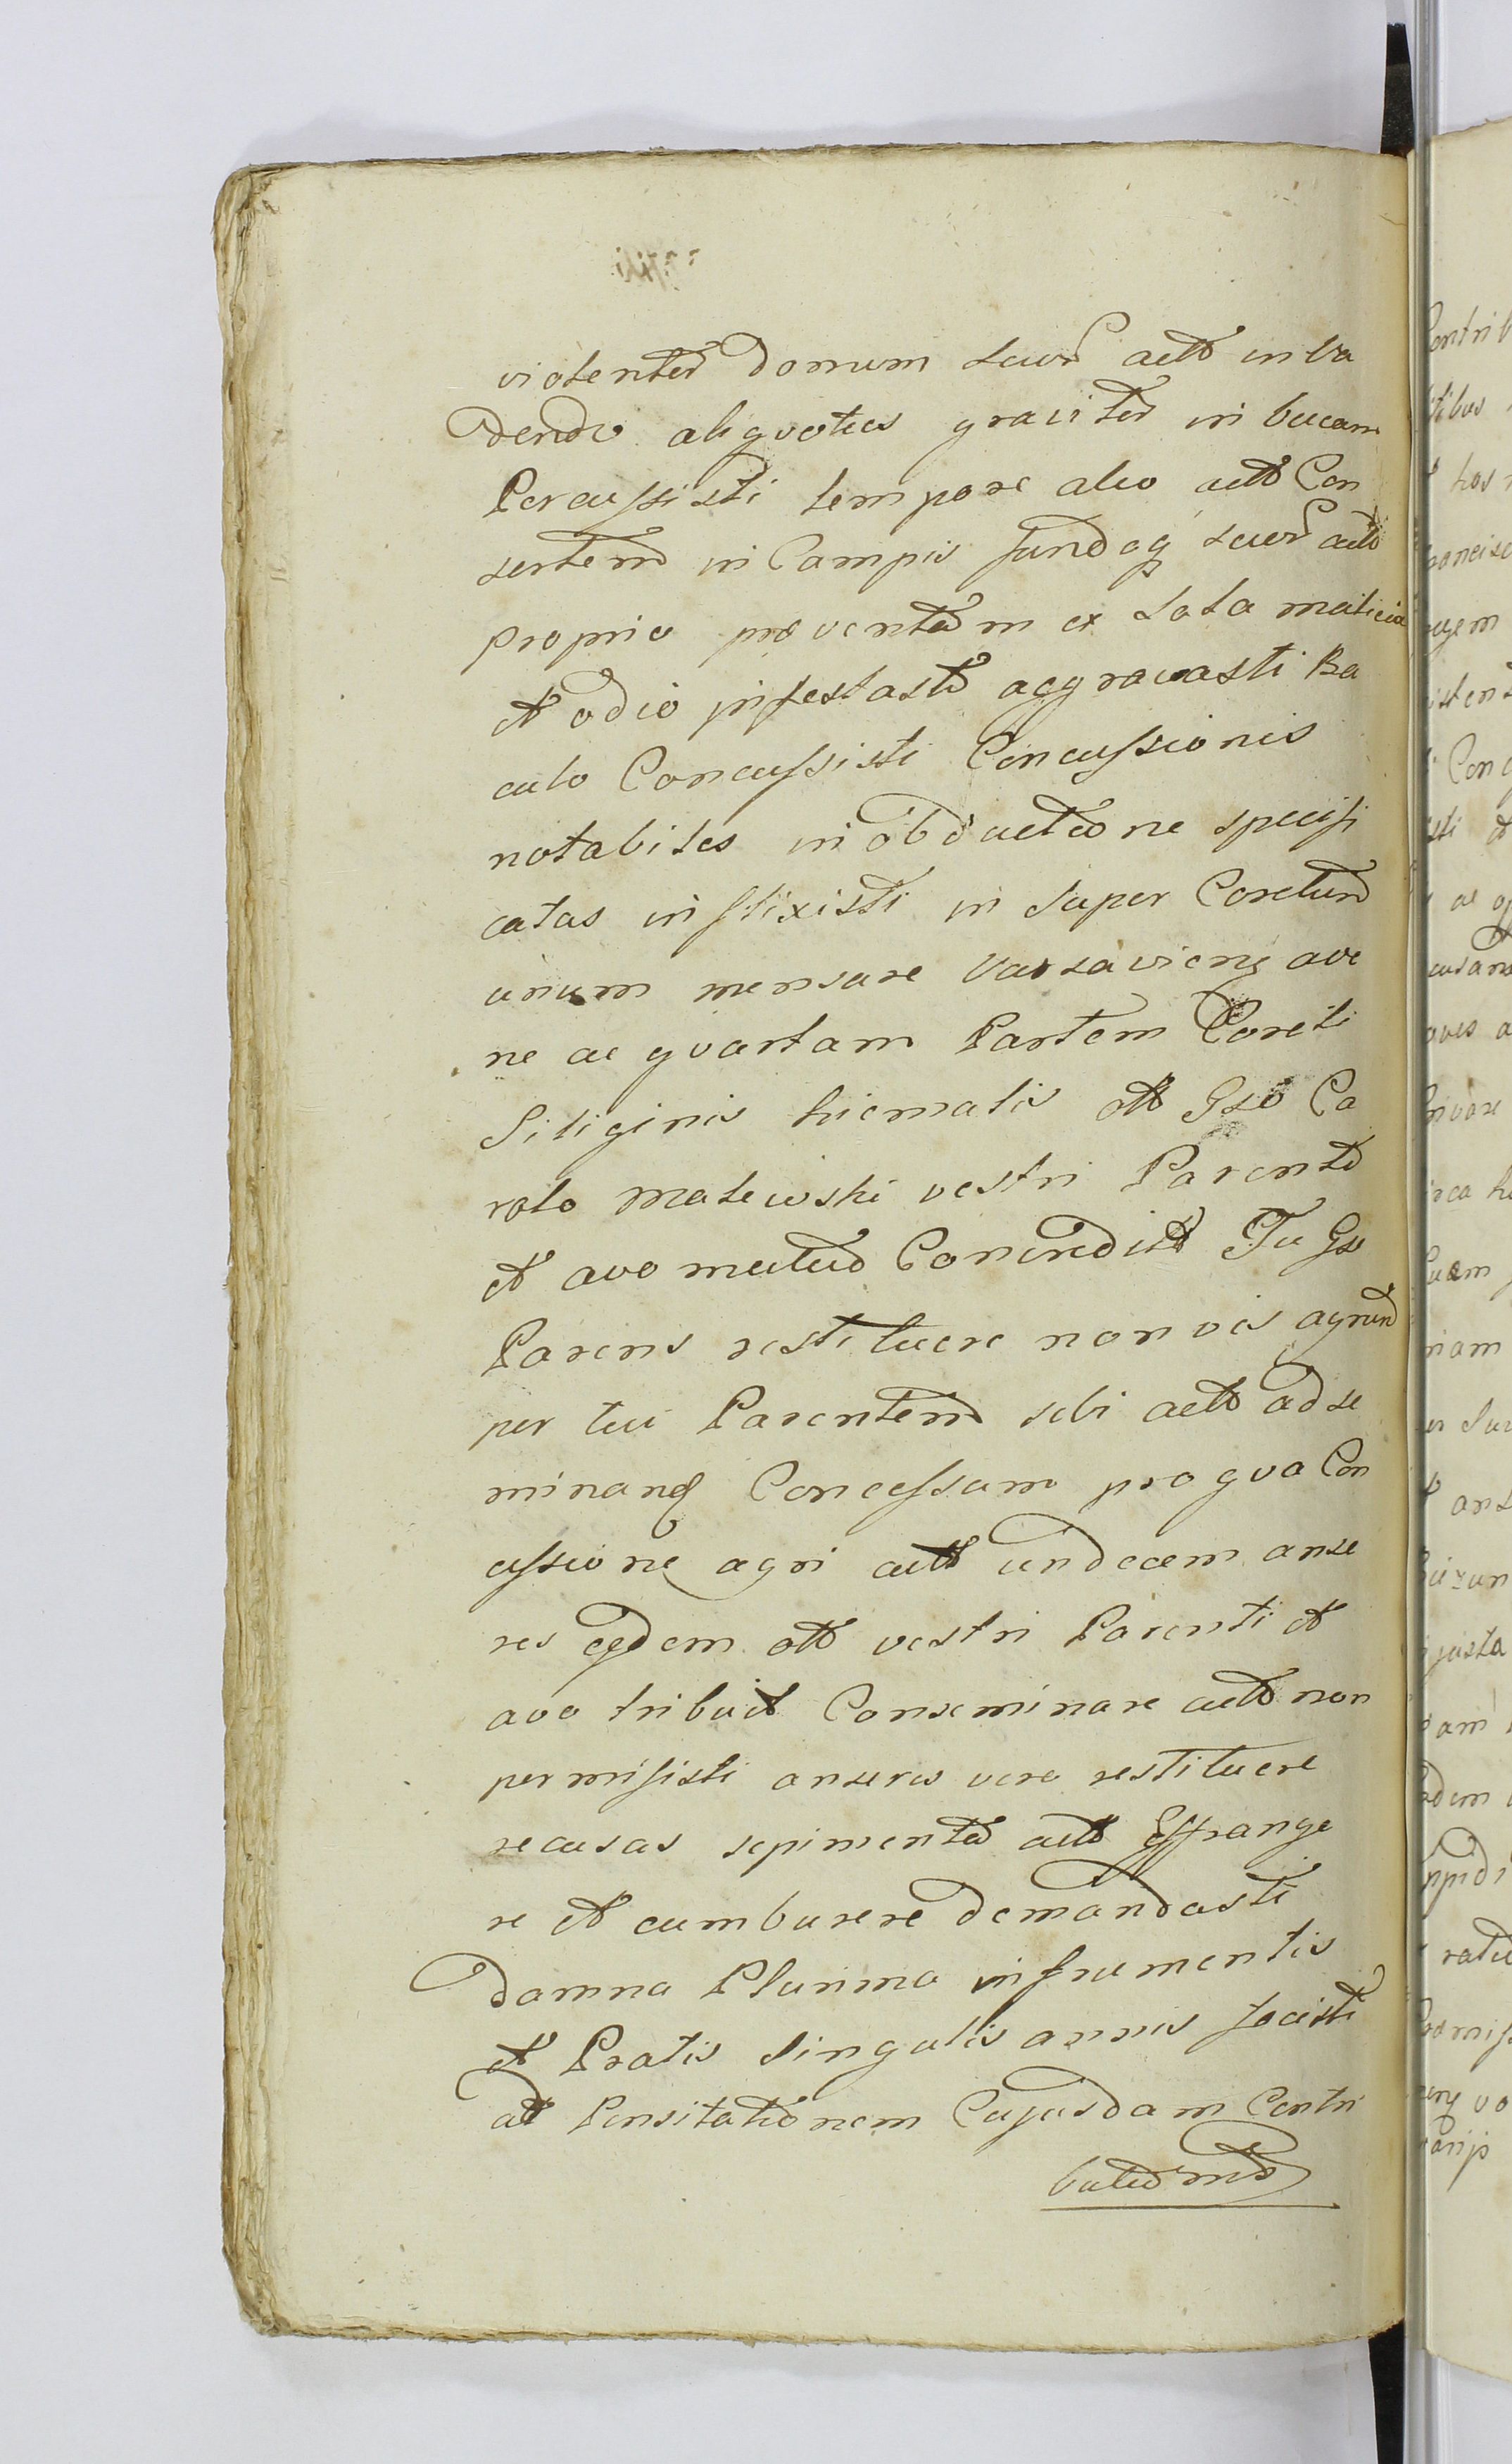 violenter Domum suor actt inva
dendo aliquoties graviter in bucam
Percussisti tempore alio actt Con
sortem in Campis fundoq suor actt
proprio proventam ex sola malicia
et odio infestasti aggravasti Ba
culo Concussisti Concussionis
notabiles in obductione specifi
catas inflixisti in super Coretum
unum mensure varsaviens ave
ne ac quartam Partem Coreti
Siliginis hiemalis ott Gso Ca
rolo malewski vestri Parenti
et avo mutuo Concredit Tu Gse
Parens restituere non vis agrum
per tui Parentem sibi actt ad se
minand Concessam pro qua Con
cessione agri actt undecem anse
res eidem ott vestri Parenti et
avo tribuit Conseminare actt non
permisisti anseres vero restituere
recusas sepimenta actt Effrange
re et cumburere demandasti
Damna Plurima in frumentis
et Pratis Singulis annis fecisti
ad Pensitationem Cujusdam Contri
butionis